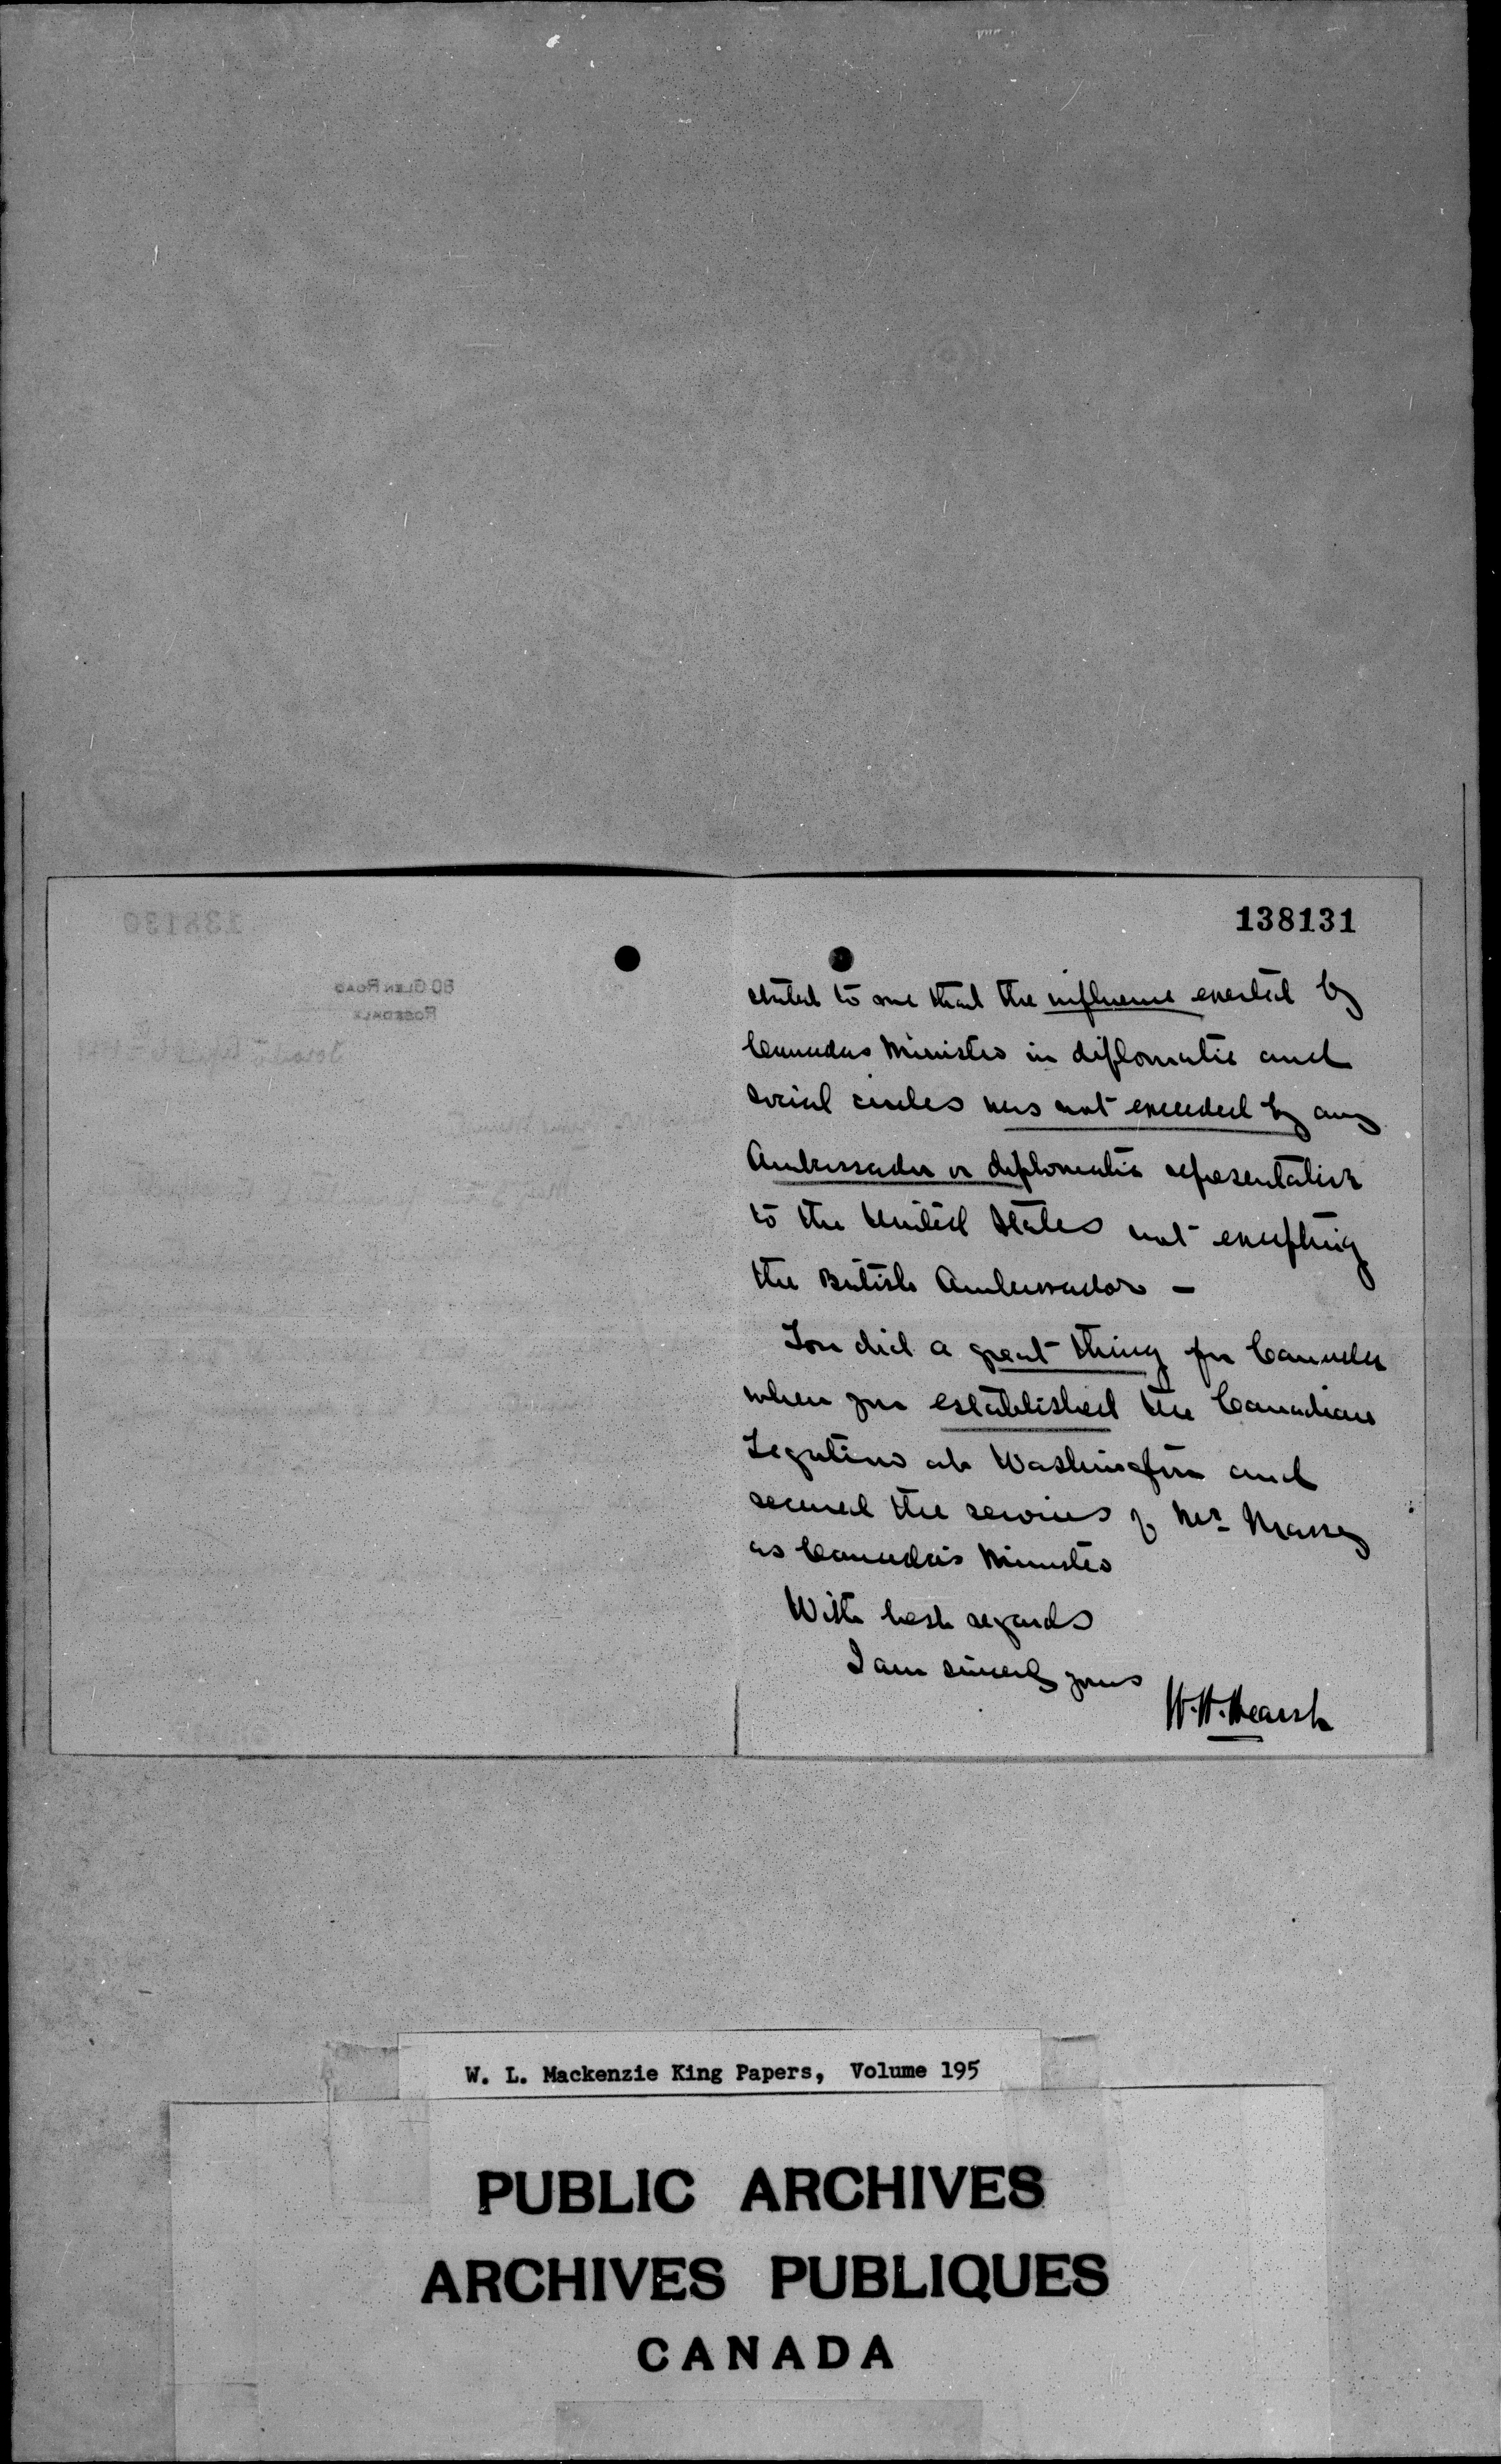 138131
stated to me that the influence exerted by
Canadas Minister in diplomatic and
social circles was not exceeded by any
Ambassador or diplomatic representative
to the United States not excepting
the British Ambassador –
You did a great thing for Canada
when you established the Canadian
Legation at Washington and
secured the services of Mr. Massey
as Canada's Minister
With best regards
I am sincerely yours
W.H. Hearst
138130
80 GLEN ROAD
ROSEDALE
Toronto
W. L. Mackenzie King Papers, Volume 195
PUBLIC ARCHIVES
ARCHIVES PUBLIQUES
CANADA